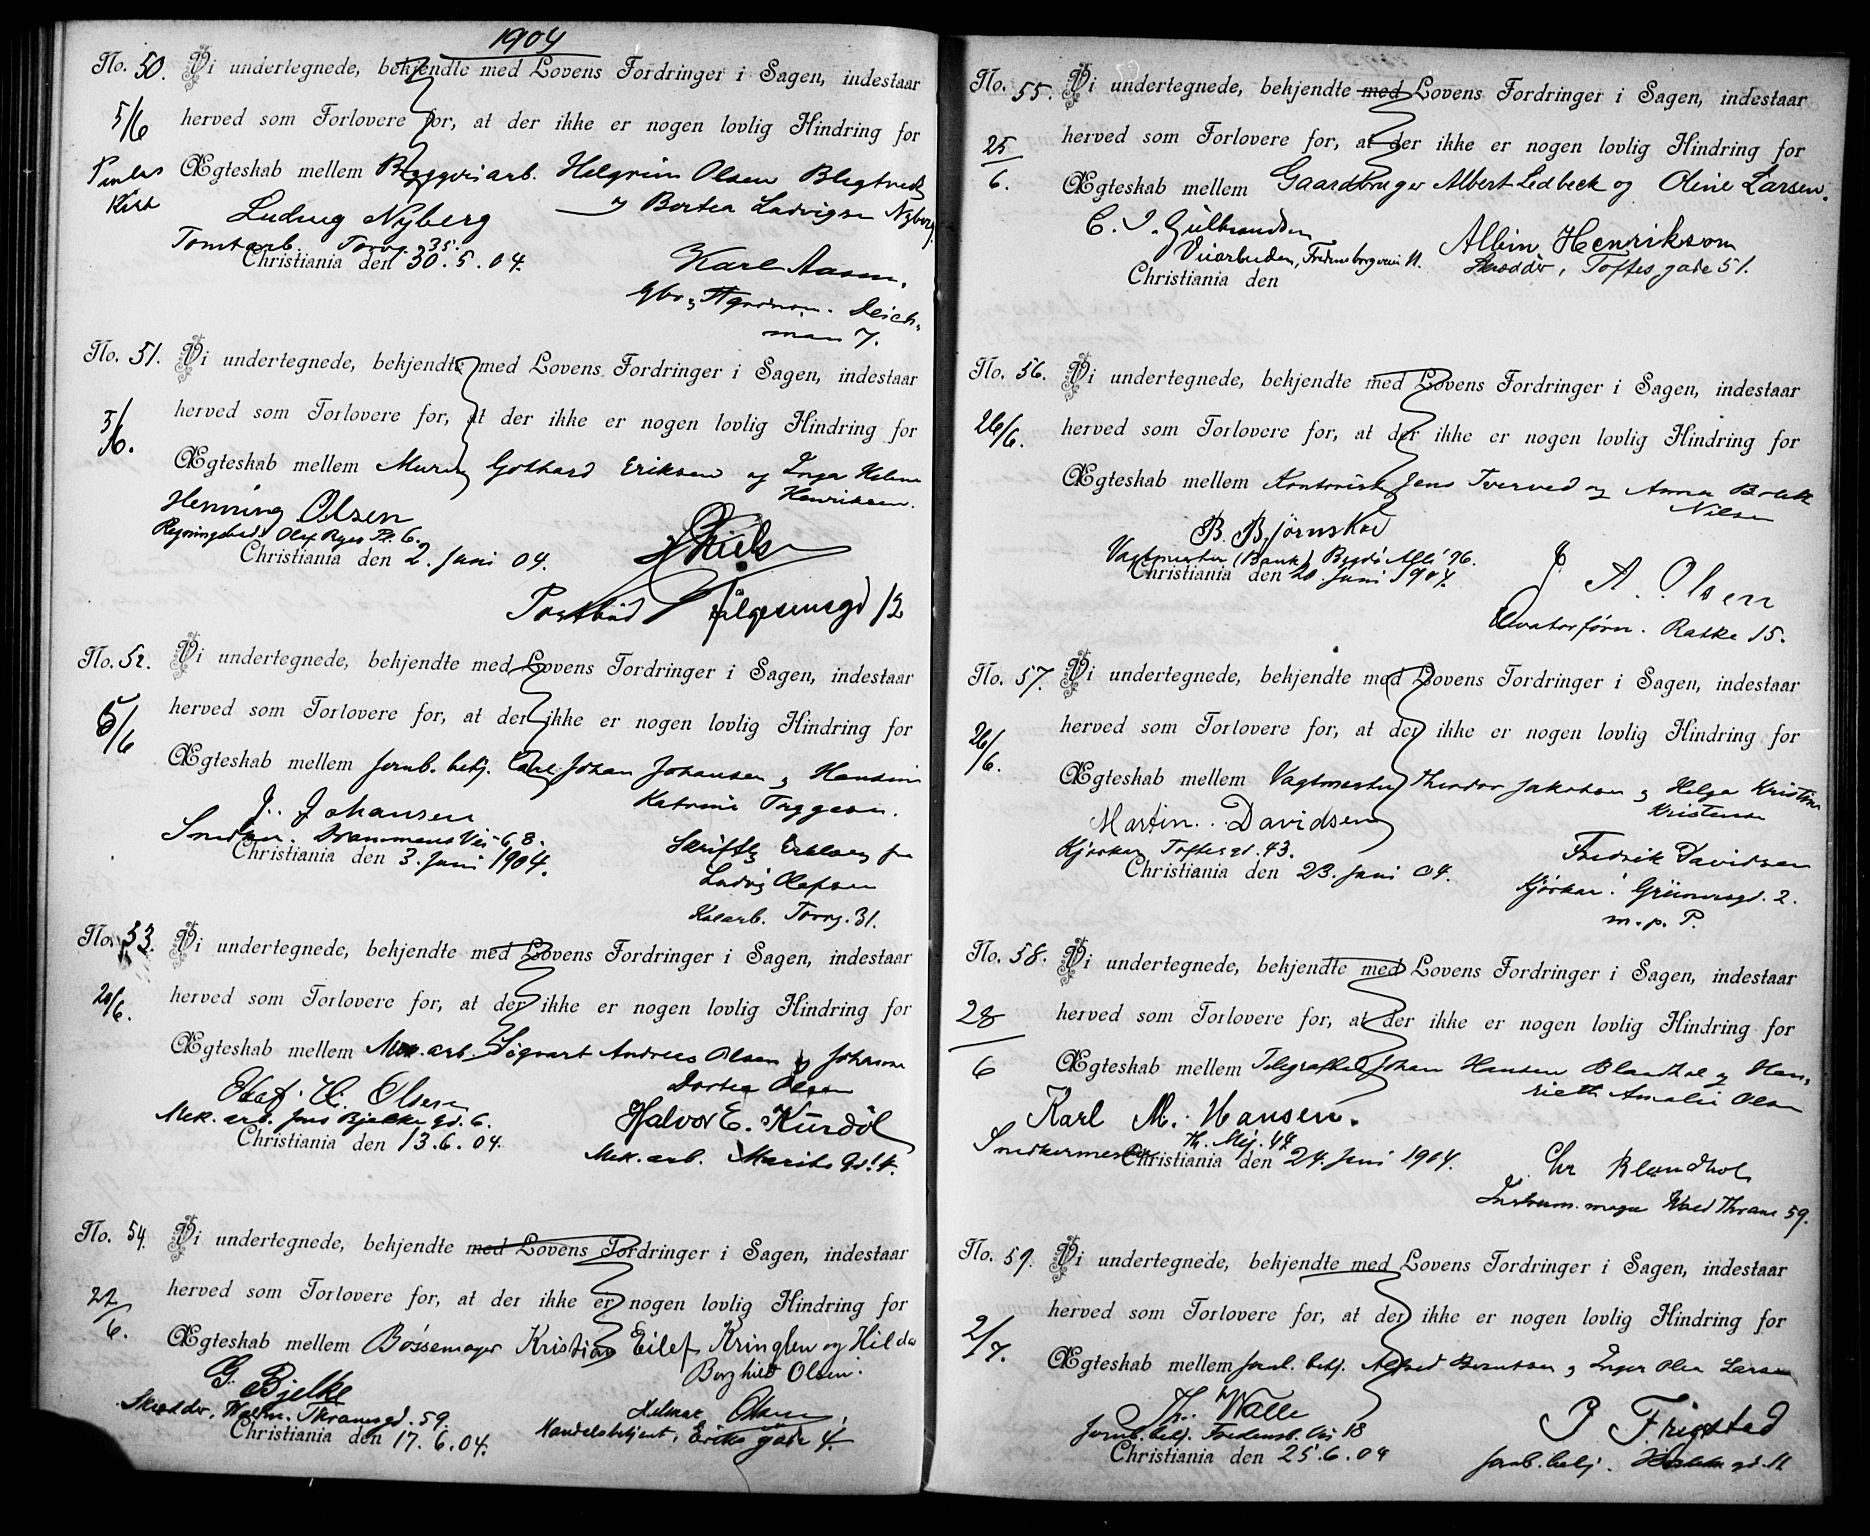 1904
No. 50. Vi undertegnede, bekjendte med Lovens Fordringer i Sagen, indestaar
5/6 herved som Forlovere for, at der ikke er nogen lovlig Hindring for
Ægteskab mellem Bryggeriarb. Helgrim Olsen Blegtvedt
og Bertea Ludvigsen Nyborg
Ludvig Nyberg
Tomtarb. Torvg. 35.
Christiania den 30.5.04.
Karl Aasen,
Gbr. og Agronom. Deich-
man 7.
No. 51. Vi undertegnede, bekjendte med Lovens Fordringer i Sagen, indestaar
5/6. herved som Forlovere for, at der ikke er nogen lovlig Hindring for
Ægteskab mellem Murer Gothard Eriksen og Inga Helene
Henriksen.
Henning Olsen
Olaf Ryes Pl. 6.
Christiania den 2. Juni 04.
Postbud
No. 52. Vi undertegnede, bekjendte med Lovens Fordringer i Sagen, indestaar
5/6 herved som Forlovere for, at der ikke er nogen lovlig Hindring for
Ægteskab mellem Jernb. betj. Carl Johan Johansen og Hansine
Katrine Tryggesen.
J. Johansen
Snedker. Drammens Vei 68.
Christiania den 3. Juni 1904.
Skriftlig Erklæring fra
Ludvig Olafsen
Torvg. 31.
No. 53. Vi undertegnede, bekjendte med Lovens Fordringer i Sagen, indestaar
20/6. herved som Forlovere for, at der ikke er nogen lovlig Hindring for
Ægteskab mellem Mek. arb. Sigvart Andreas Olsen og Johanne
Dortea Olsen
Olaf. H. Olsen
Mek. arb. Jens Bjelkes gd. 6.
Christiania den 13.6.04.
Halvor E. Kurdöl
Mek. arb. Marits gd. 4.
No. 54. Vi undertegnede, bekjendte med Lovens Fordringer i Sagen, indestaar
22/6. herved som Forlovere for, at der ikke er nogen lovlig Hindring for
Ægteskab mellem Bøssemager Kristian Eilef Kringlen og Hilda
Borghild Olsen.
G. Bjelke
Skrædder, Markv. Thranesgd. 59.
Christiania den 17.6.04.
Hilmar Olsen,
Handelsbetjent, Eriks gade 4.
No. 55. Vi undertegnede, bekjendte med Lovens Fordringer i Sagen, indestaar
25/6. herved som Forlovere for, at der ikke er nogen lovlig Hindring for
Ægteskab mellem Gaardbruger Albert Ledbeck og Oline Larsen.
C. J. Gulbrandsen
Veiarbeider, Fredensborgveien 11.
Albin Henriksom
Skrædder, Toftes gade 51.
Christiania den
No. 56. Vi undertegnede, bekjendte med Lovens Fordringer i Sagen, indestaar
26/6. herved som Forlovere for, at der ikke er nogen lovlig Hindring for
Ægteskab mellem Kontorist Jens Tverved og Anna Bolette
Nilsen
B. Bjørnskod
Vagtmester (Bank) Bygdø Allé 76.
Christiania den 20. Juni 1904.
J. A. Olsen
Elevatorførn. Ratke 15.
No. 57. Vi undertegnede, bekjendte med Lovens Fordringer i Sagen, indestaar
26/6. herved som Forlovere for, at der ikke er nogen lovlig Hindring for
Ægteskab mellem Vagtmester Theodor Jakobsen og Helga Kristine
Kristensen
Martin. Davidsen
Kjørkar Toftesgd. 43.
Christiania den 23. Juni 04.
Fredrik Davidsen
Kjørkar. Grünersgd. 2.
m. p. P.
No. 58. Vi undertegnede, bekjendte med Lovens Fordringer i Sagen, indestaar
28/6 herved som Forlovere for, at der ikke er nogen lovlig Hindring for
Ægteskab mellem Telegrafist Johan Hansen Blandhol og Hen-
riette Amalie Olsen
Karl M. Hansen.
Snedkermester Th. Mej. 44.
Christiania den 24. Juni 1904.
Chr Blandhol
Instrum. mager Thrane 59.
No. 59. Vi undertegnede, bekjendte med Lovens Fordringer i Sagen, indestaar
2/7. herved som Forlovere for, at der ikke er nogen lovlig Hindring for
Ægteskab mellem Jernb. betj. Alfred Berntsen og Inger Olea Larsen
Th. Walle
Jernb. betj. Fredensb. Vei 18
Christiania den 25.6.04
P Frigstad
Jernb. betj.